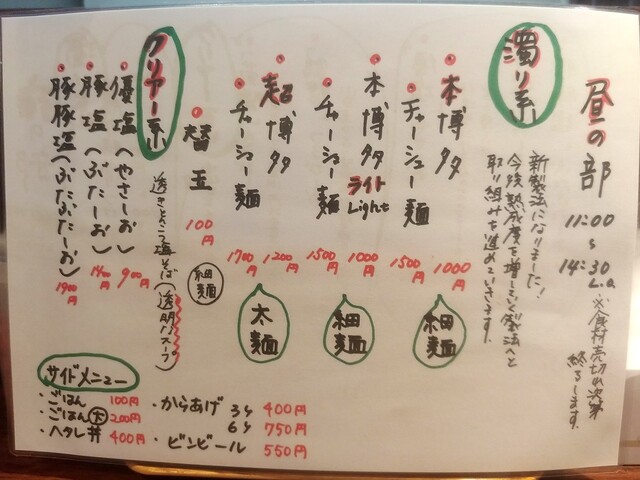 昼の部
11:00
〜
14:30
L.o.
※食材売切れ次第
終了します。
濁り系
新製法になりました!
今後熟成度を増していく製法へと
取り組みを進めていきます。
・本博多 1000円
・チャーシュー麺 1500円
細麺
・本博多ライトLight 1000円
・チャーシュー麺 1500円
細麺
・超博多 1200円
・チャーシュー麺 1700円
太麺
・替玉 100円
クリアー系
透きとおる塩そば(透明スープ)
細麺
・優塩(やさしお) 900円
・豚塩(ぶたしお) 1400円
・豚豚塩(ぶたぶたしお) 1900円
サイドメニュー
・ごはん 100円
・ごはん大 200円
・ヘタレ丼 400円
・からあげ 3ケ 400円
6ケ 750円
・ビンビール 550円